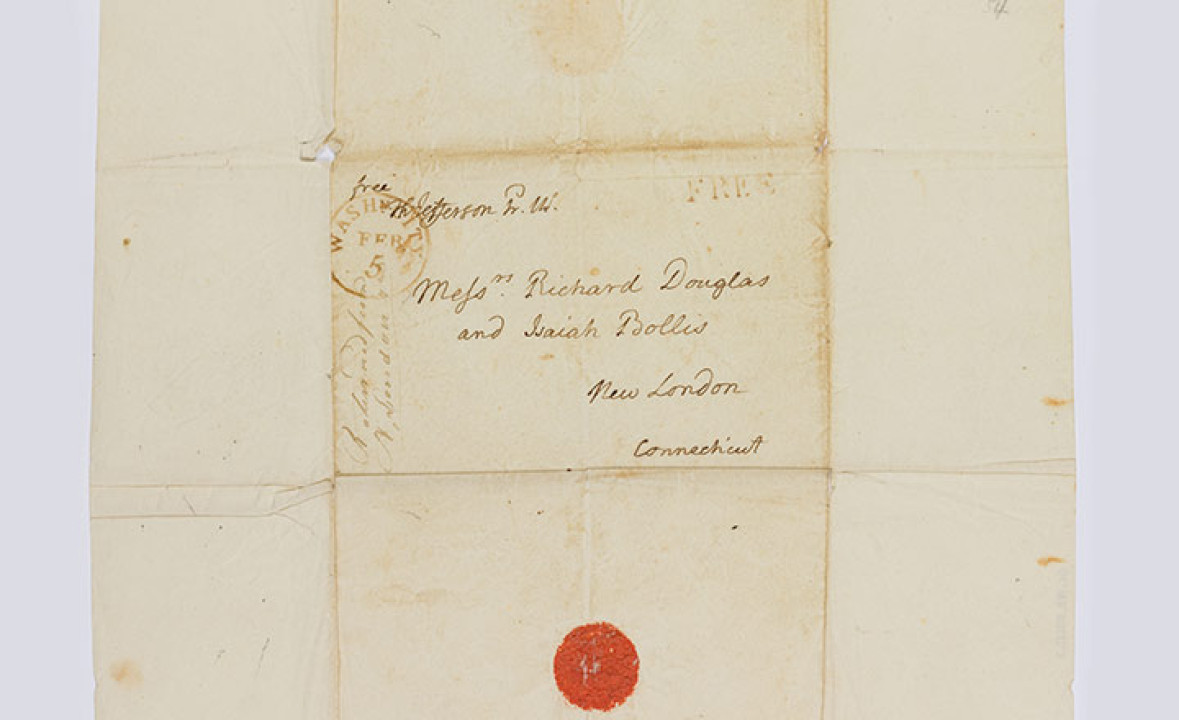 54
free
Th Jefferson Pr. U.S.
FREE
WASH
FEB
5
Mess.rs Richard Douglas
and Isaiah Bollis
New London
Connecticut